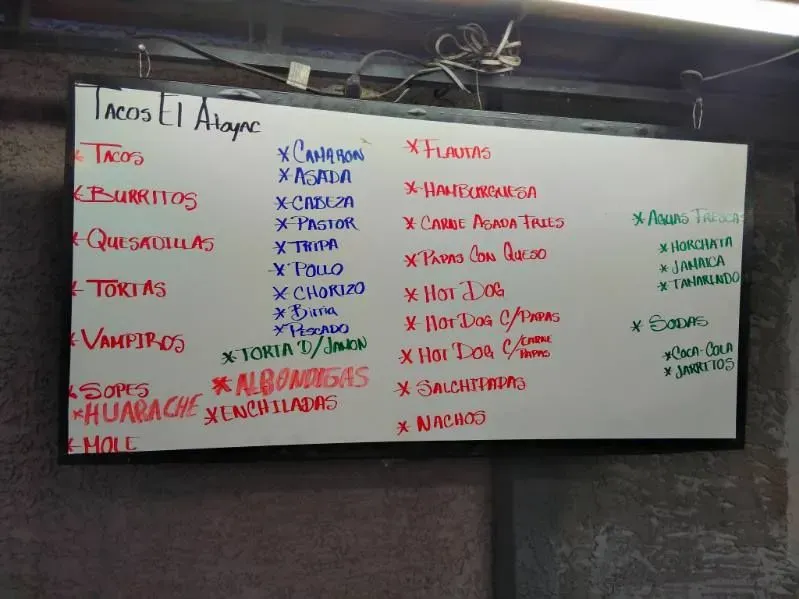 Tacos El Atoyac
* Tacos
* Burritos
* Quesadillas
* Tortas
* Vampiros
* Sopes
* Huarache
* Mole
* Camaron
* Asada
* Cabeza
* Pastor
* Tripa
* Pollo
* Chorizo
* Birria
* Pescado
* Torta D/Jamon
* Albondigas
* Enchiladas
* Flautas
* Hamburguesa
* Carne Asada Fries
* Papas Con Queso
* Hot Dog
* Hot Dog C/Papas
* Hot Dog C/Carne Papas
* Salchipapas
* Nachos
* Aguas Frescas
* Horchata
* Jamaica
* Tamarindo
* Sodas
* Coca-Cola
* Jarritos